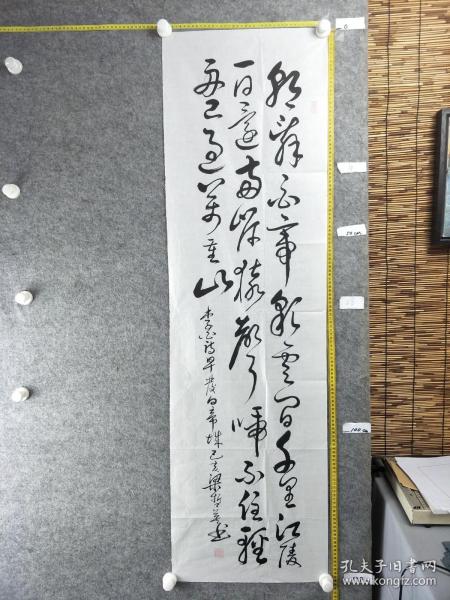 朝辞白帝彩云间千里江陵
一日还两岸猿声啼不住轻
舟已过万重山
李白诗早发白帝城己亥梁
书
孔夫子旧书网
kongfz.com